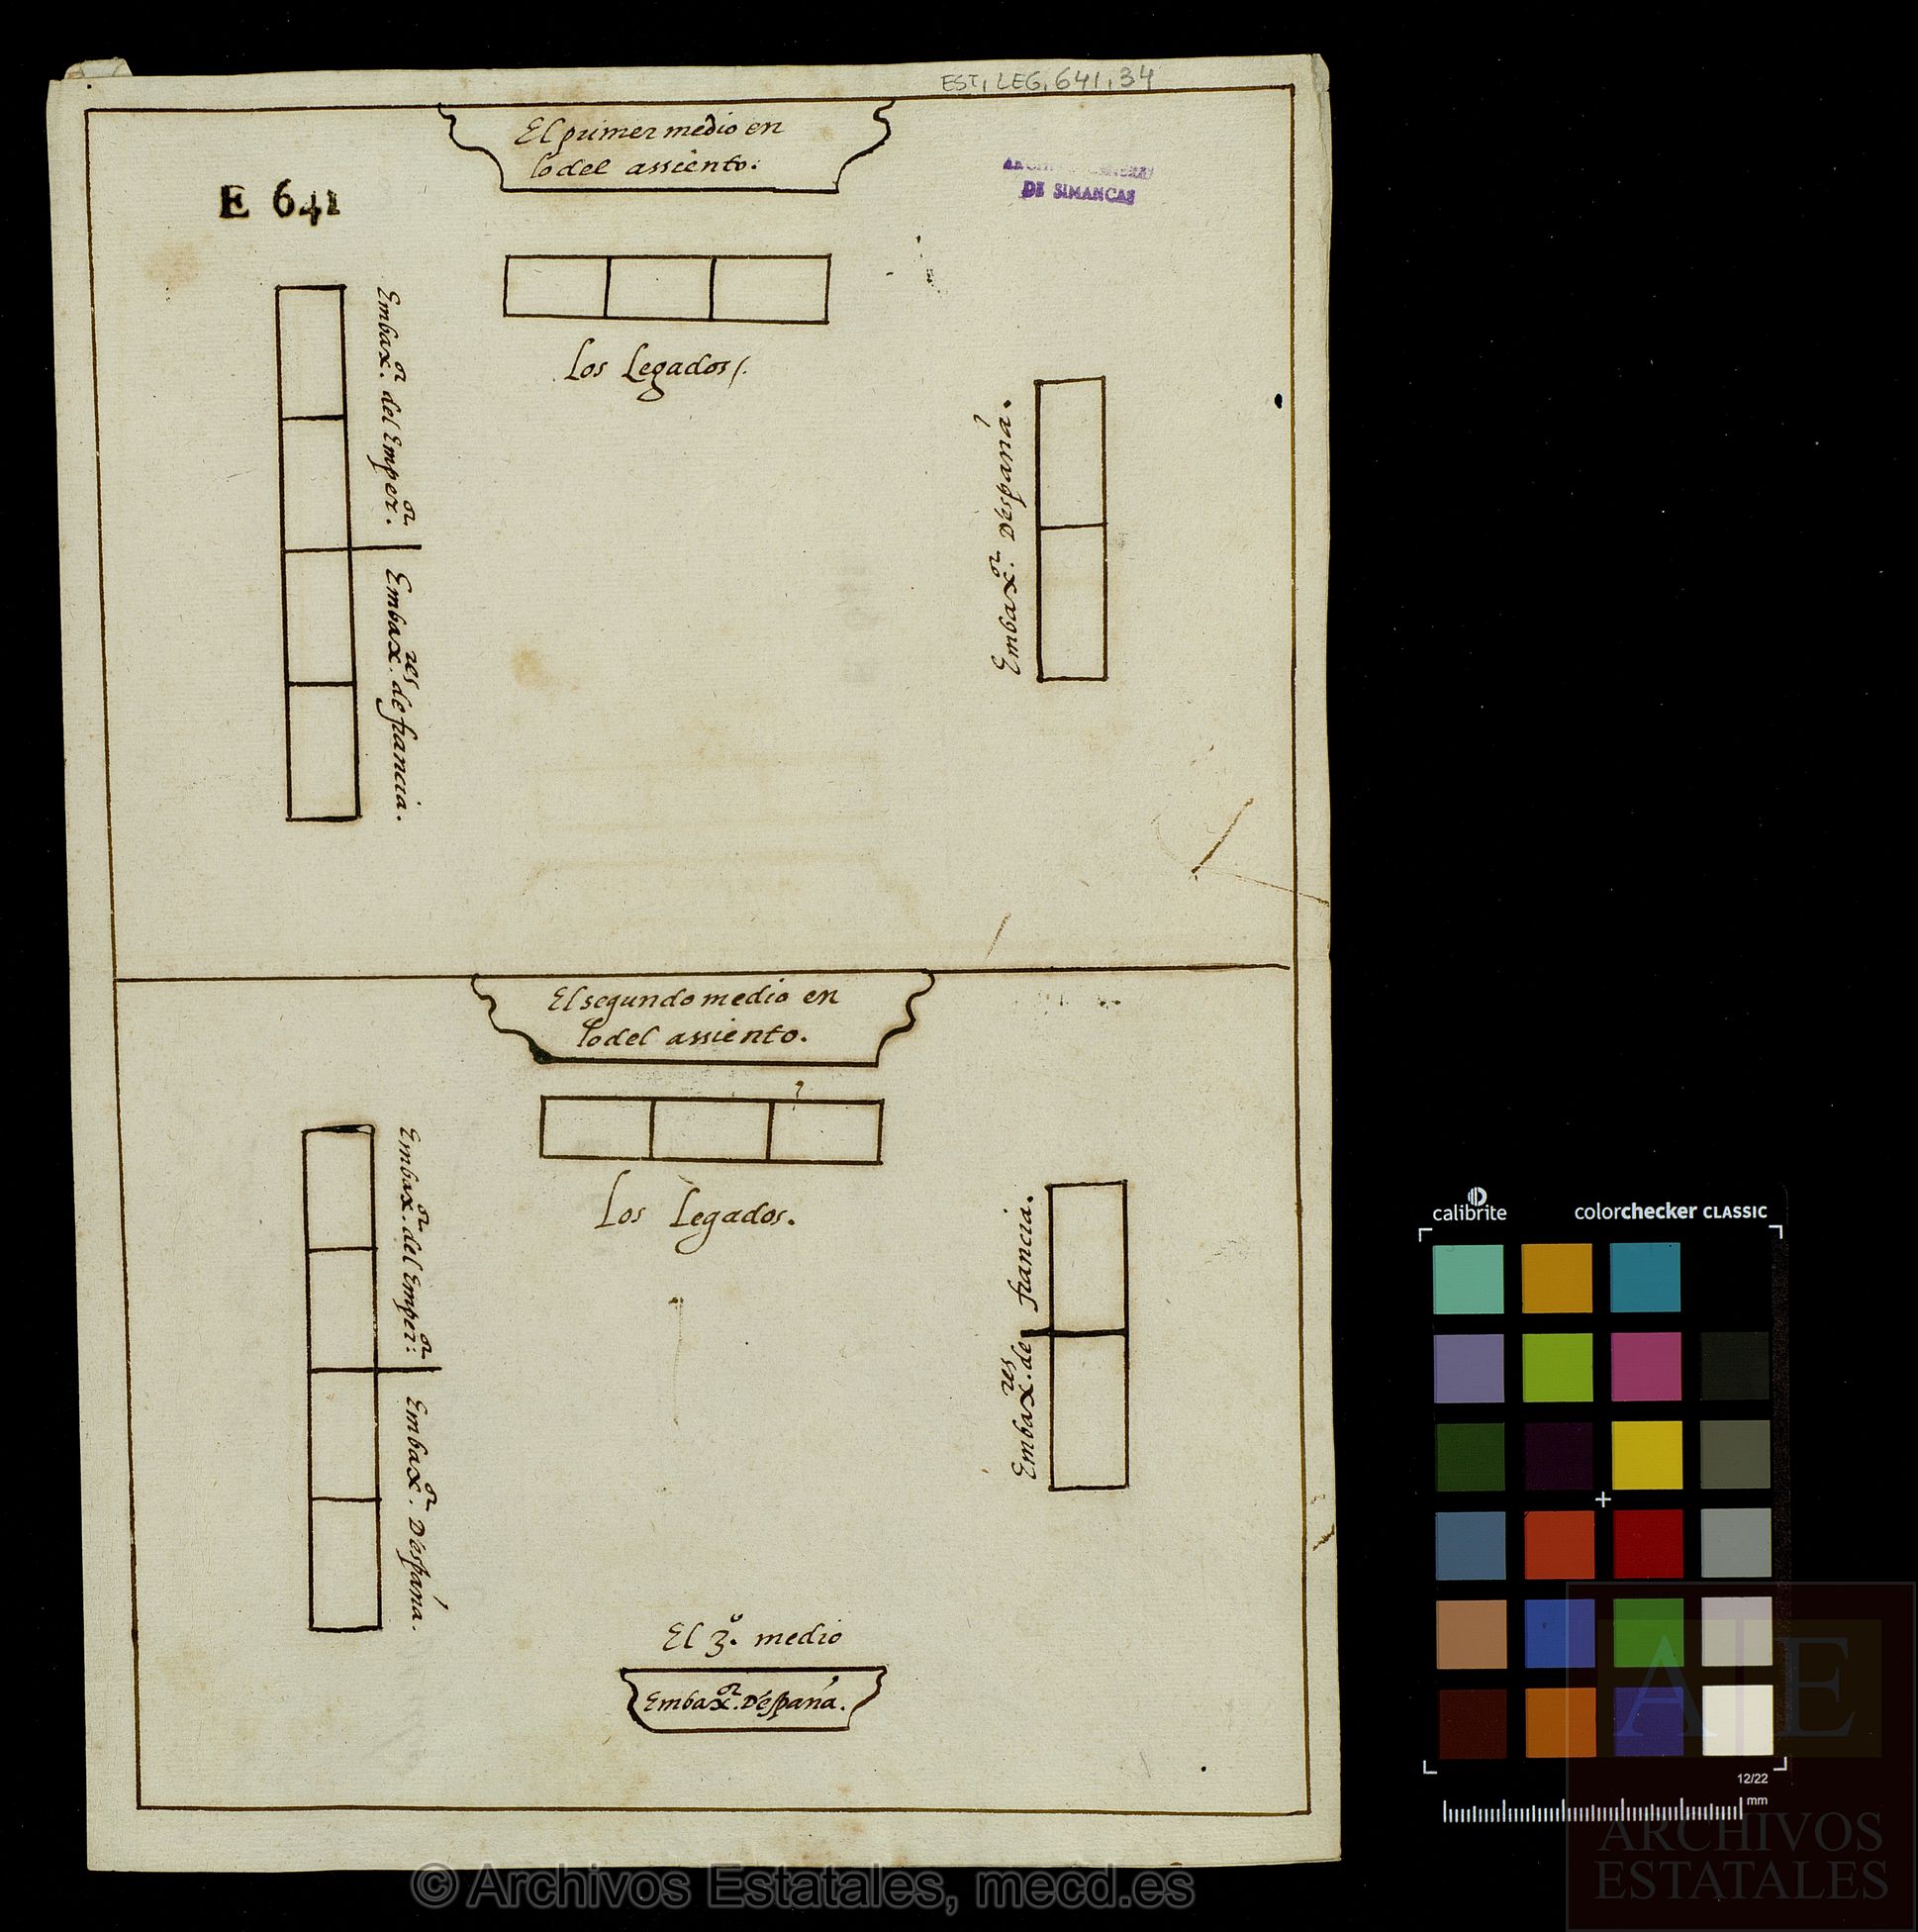 EST, LEG, 641, 34
El primer medio en
lo del assiento.
E 641
DE SIMANCAS
Los Legados/.
Embax.ᵒʳ del Emper.ᵒʳ
Embax.ʳᵉˢ de francia.
Embax.ᵒʳ D'españá.
El segundo medio en
lo del assiento.
Los Legados.
Embax.ᵒʳ del Emper:ᵒʳ
Embax.ᵒʳ D'españá.
Embax.ʳᵉˢ de francia.
El 3.º medio
Embax.ᵒʳ D'españa.
calibrite
colorchecker CLASSIC
12/22
mm
AE
ARCHIVOS
ESTATALES
© Archivos Estatales, mecd.es